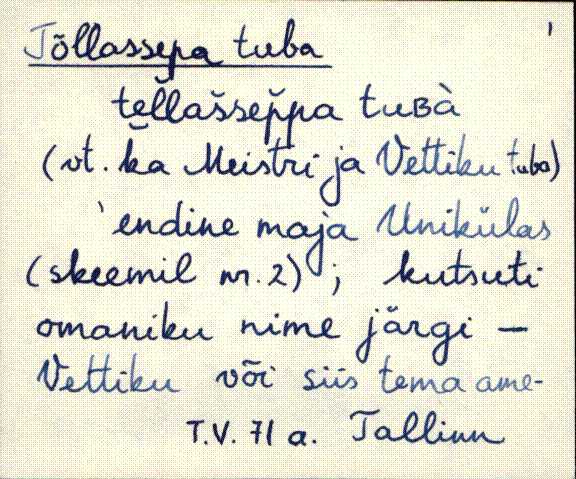 Tõllassepa tuba
tel̆lašsep̆pa tuʙà
(vt. ka Meistri ja Vettiku tuba)
'endine maja Unikülas
(skeemil nr. 2); kutsuti
omaniku nime järgi –
Vettiku või siis tema ame-
T.V. 71 a. Tallinn